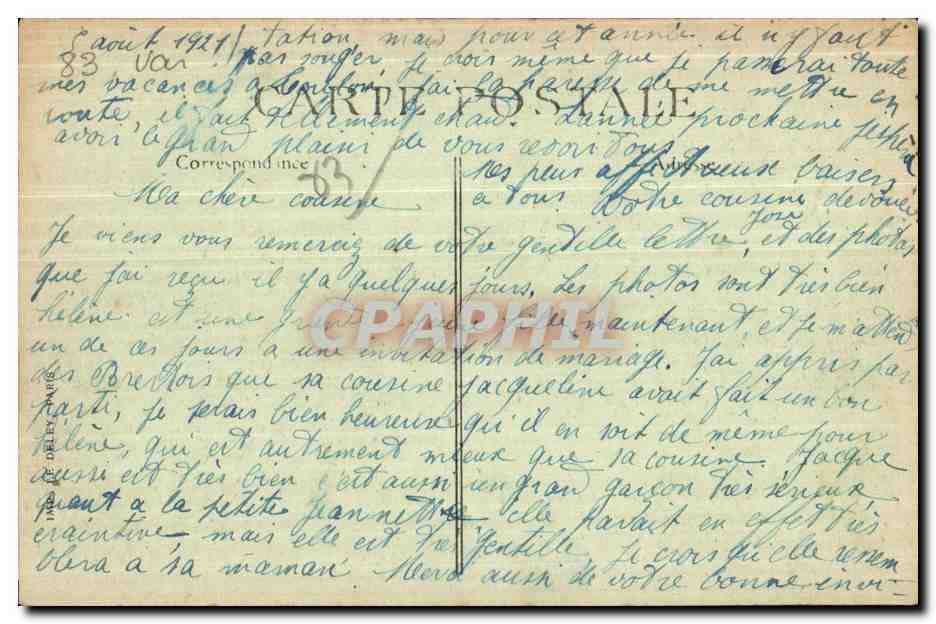 5 août 1921 / tation, mais pour cet année il n'y faut
83 Var pas songer, je crois même que je passerai toute
mes vacances a Toulon, j'ai la paresse de me mettre en
route, il fait tellement chaud. L'année prochaine j'espère
avoir le grand plaisir de vous revoir tous
CARTE POSTALE
Correspondance
Adresse
83
Mes plus affectueux baisers
a tous Votre cousine dévouée
José
Ma chère cousine
Je viens vous remercier de votre gentille lettre, et des photos
que j'ai reçu il y a quelques jours. Les photos sont très bien
hélène est une jeune fille maintenant, et je m'attend
un de ces jours a une invitation de mariage. J'ai appris par
des que sa cousine Jacqueline avait fait un bon
parti, je serais bien heureuse qu'il en soit de même pour
hélène, qui est autrement mieux que sa cousine. Jacque
aussi est très bien c'est aussi un grand garçon très sérieux
quant a la petite Jeannette elle parait en effet très
craintive mais elle est très gentille. Je crois qu'elle ressem
blera a sa maman. Merci aussi de votre bonne invi-
IMP. LE DELEY, PARIS
CPAPHIL